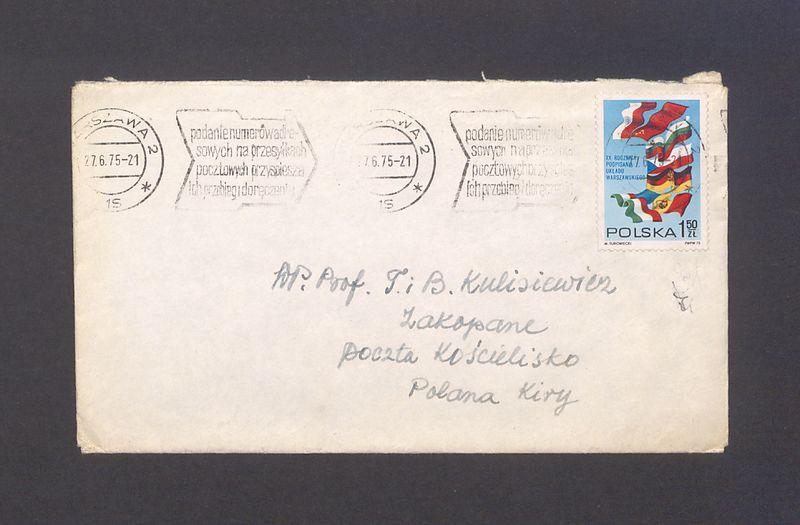 WARSZAWA 2
27.6.75-21
1S
podanie numerów adre-
sowych na przesyłkach
pocztowych przyspiesza
ich przebieg i doręczenie
WARSZAWA 2
27.6.75-21
1S
podanie numerów adre-
sowych na
pocztowych
ich przebieg i doręczenie
XX ROCZNICA
PODPISANIA
UKŁADU
WARSZAWSKIEGO
POLSKA 1 50 ZŁ
PWPW 75
WP. Prof. T. i B. Kulisiewicz
Zakopane
poczta Kościelisko
Polana Kiry